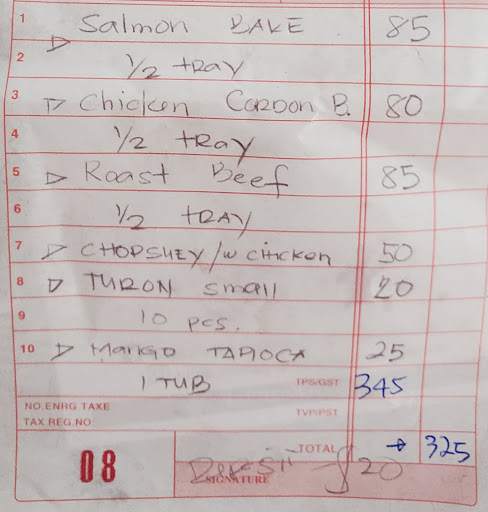 1 Salmon BAKE 85
2 1/2 tray
3 Chicken Cordon B. 80
4 1/2 tRay
5 Roast Beef 85
6 1/2 tRAY
7 CHOPSUEY/w chicken 50
8 TURON small 20
9 10 pcs.
10 Mango TAPIOCA 25
1 TUB TPS/GST 345
NO.ENRG.TAXE TVP/PST
TAX REG.NO
TOTAL → 325
08 SIGNATURE $20